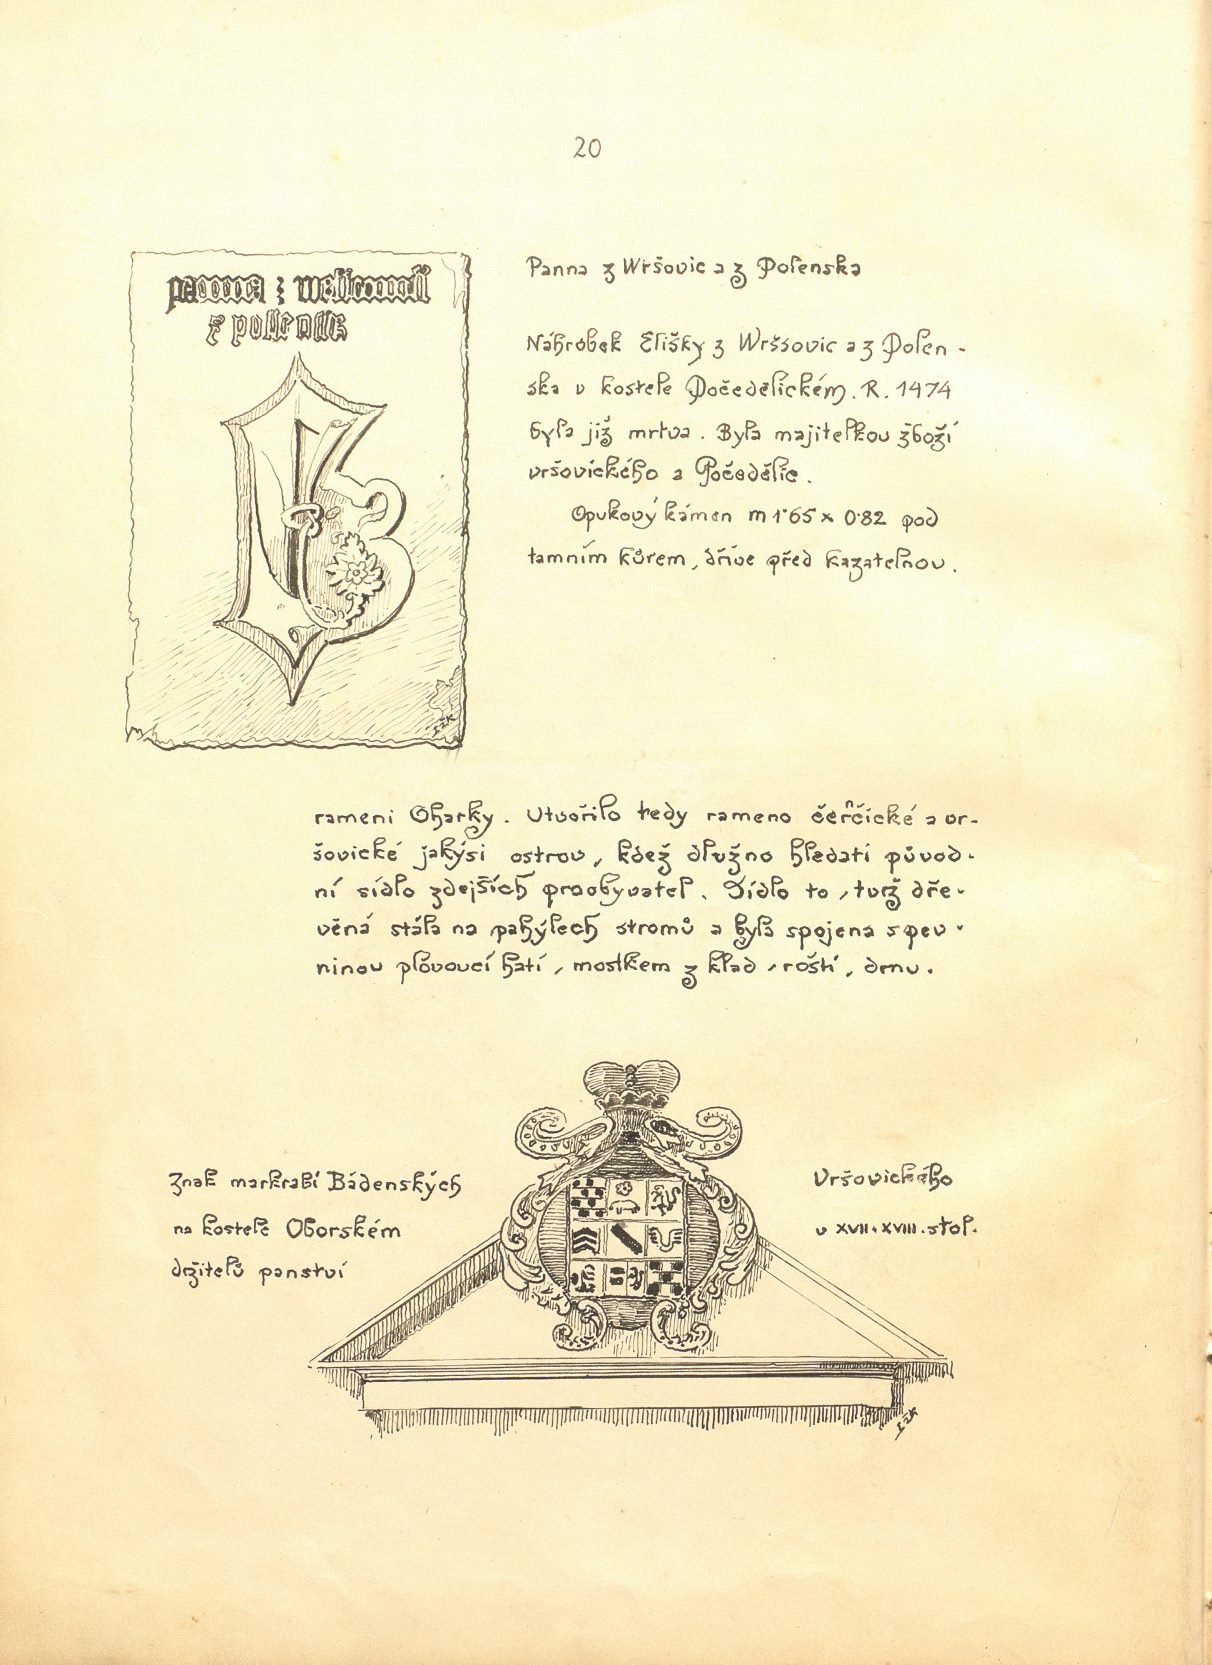 20
panna z
z polenska
Panna z Wršovic a z Polenska
Náhrobek Elišky z Wršsovic a z Polen-
ska v kostele Počedělickém. R. 1474
byla již mrtva. Byla majitelkou zboží
vršovického a Počedělíc.
Opukový kámen m 1·65 x 0·82 pod
tamním kůrem, dříve před kazatelnou.
rameni Oharky. Utvořilo tedy rameno čerčické a vr-
šovické jakýsi ostrov, kdež dlužno hledati původ-
ní sídlo zdejších praobyvatel. Sídlo to, tvrz dře-
věná stála na pahýlech stromů a byla spojena s pev-
ninou plovoucí hatí, mostkem z klad, roští, drnu.
Znak markrabí Bádenských
na kostele Oborském
držitelů panství
Vršovického
v XVII. XVIII. stol.